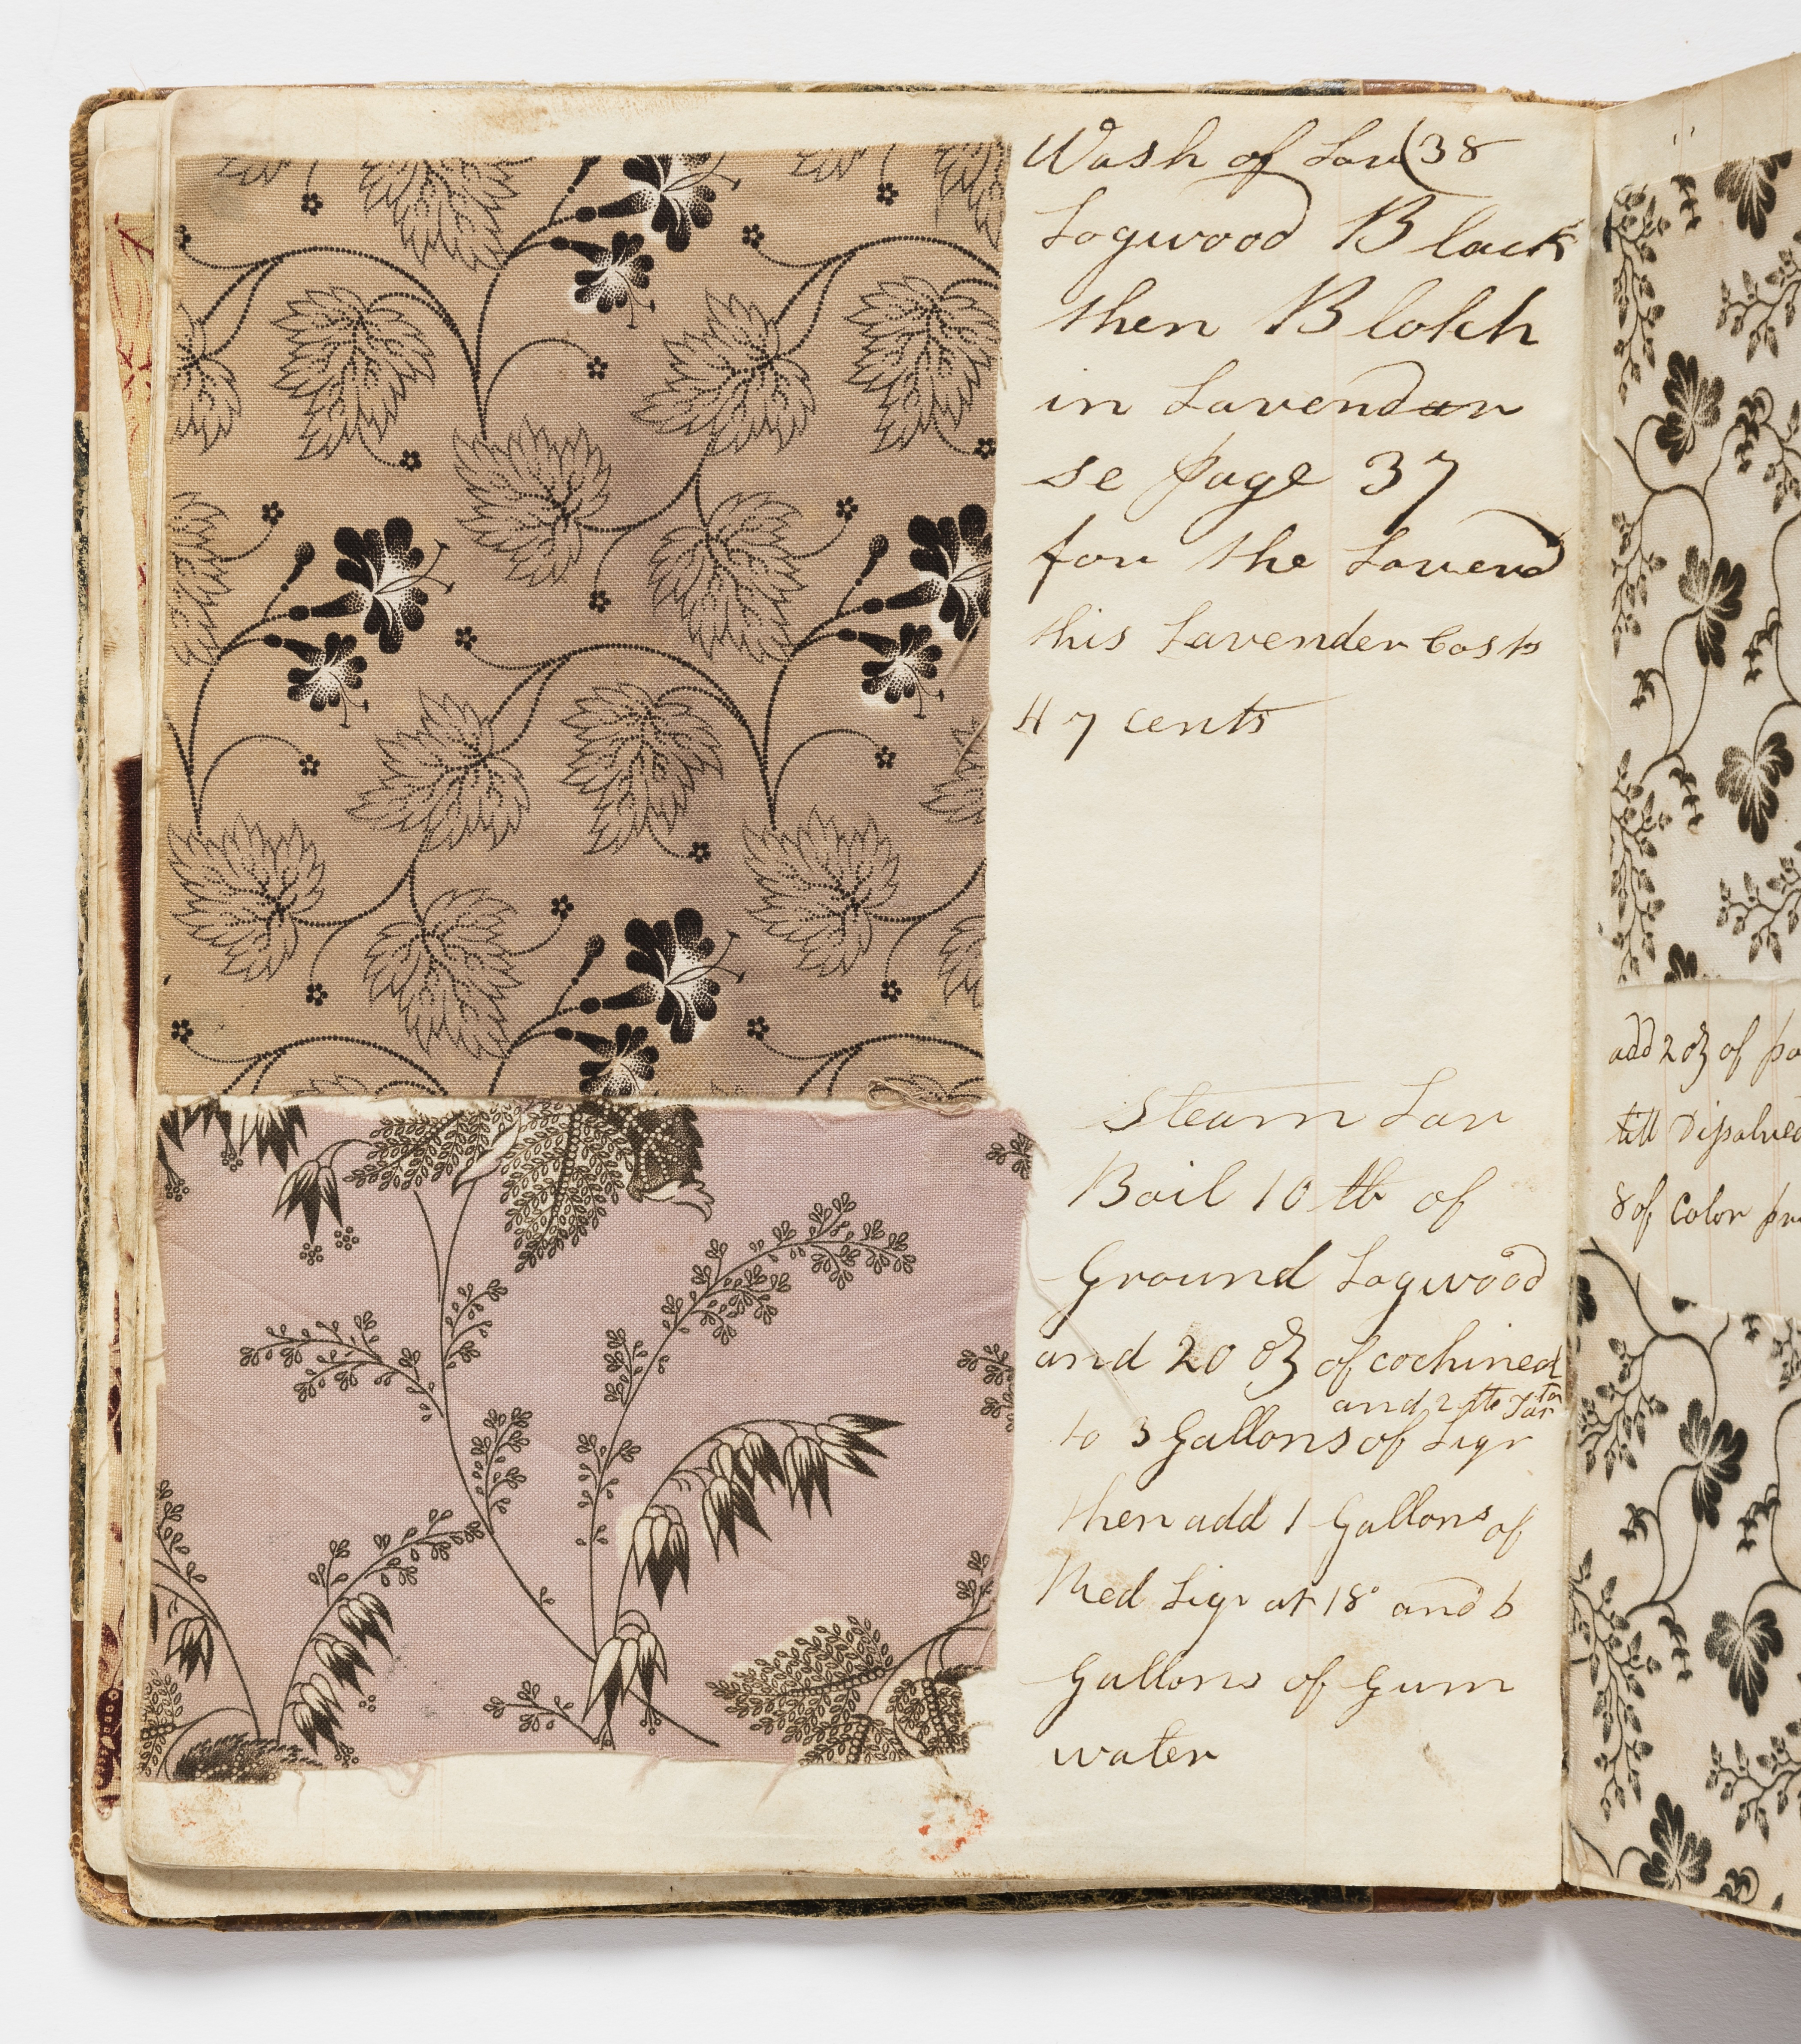 Wash of Lav (38
Logwood Black
then Blotch
in Lavendar
se page 37
for the Lavend
this Lavender Costs
47 cents
Steam Lav
Boil 10 lb of
Ground Logwood
and 20 oz of cochineal
and 2 lb Tar
to 3 Gallons of Liqr
then add 1 Gallons of
Red Liqr at 18° and 6
Gallons of Gum
water
add 2 oz of
till Disolved
8 of Color